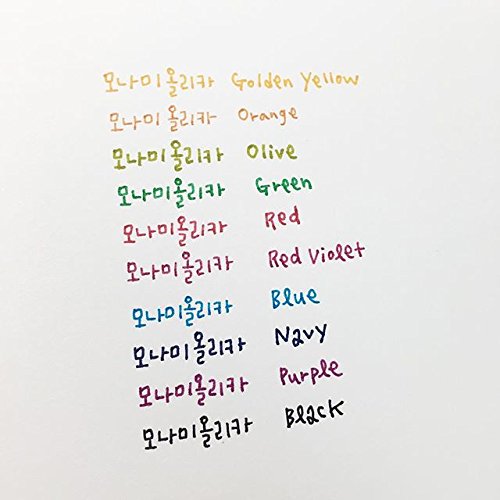 모나미올리카 Golden Yellow
모나미올리카 Orange
모나미올리카 Olive
모나미올리카 Green
모나미올리카 Red
모나미올리카 Red Violet
모나미올리카 Blue
모나미올리카 Navy
모나미올리카 Purple
모나미올리카 Black